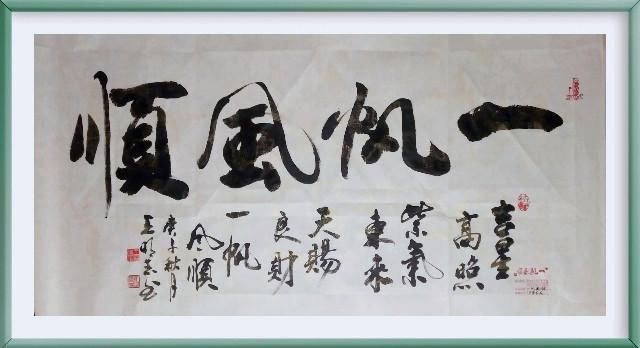 一帆風順
吉星
高照
紫氣
東來
天賜
良財
一帆
风順
庚子秋月